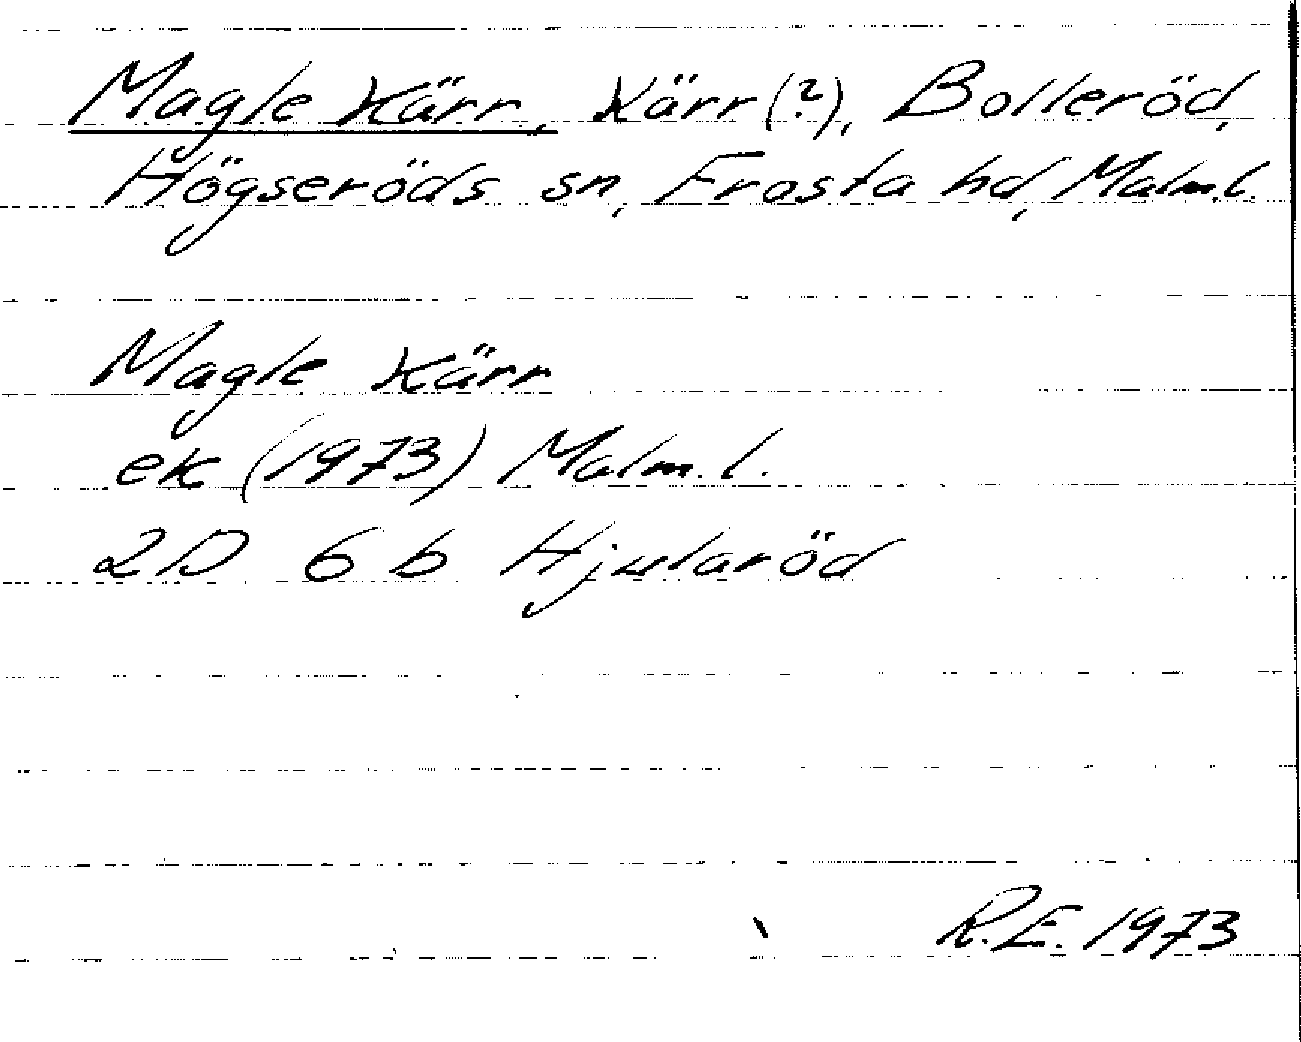 Magle Kärr, Kärr (?), Bolleröd,
Högseröds sn, Frosta hd, Malm.l.
Magle Kärr
ek (1973) Malm.l.
2D 6b Hjularöd
R.E. 1973